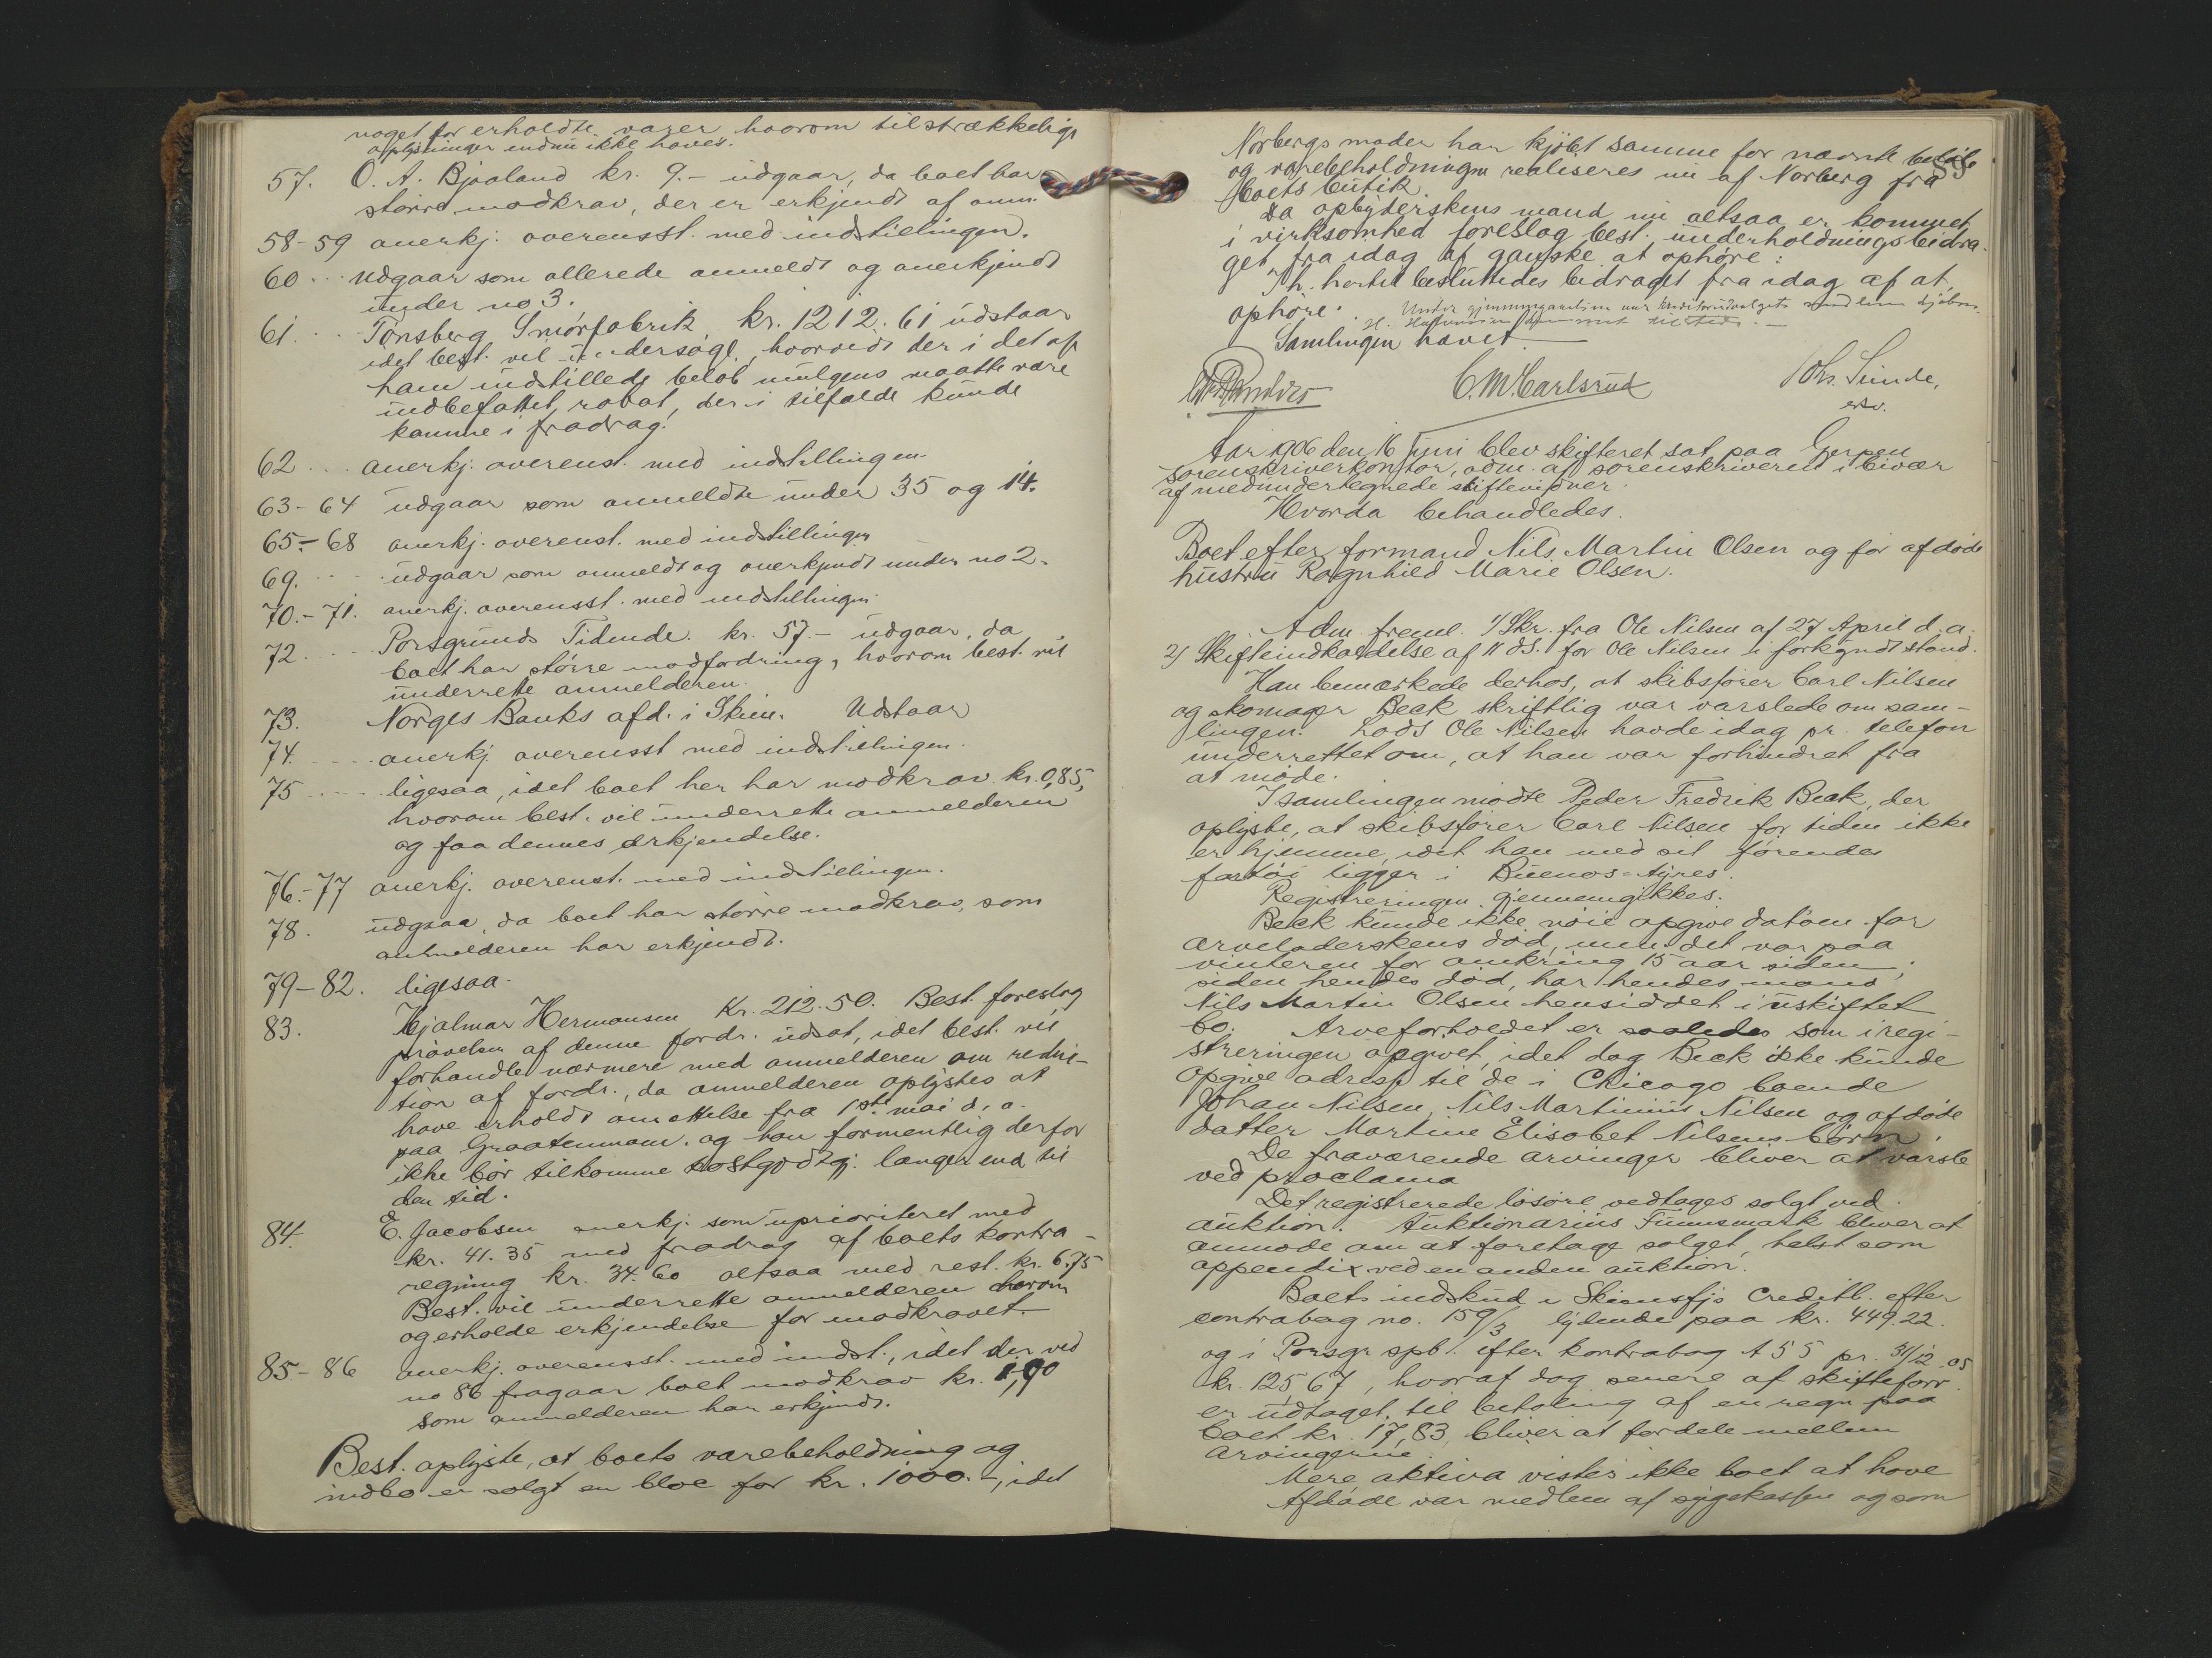 noget for erholdte varer hvorom tilstrækkelige
oplysninger endnu ikke haves.
57. O. A. Bjaaland kr. 9.- udgaar, da boet har
større modkrav, der er erkjendt af anm.
58-59 anerkj. overensst. med indstillingen.
60 ... udgaar som allerede anmeldt og anerkjendt
under no 3.
61. ... Tønsberg Smørfabrik kr. 1212.61 udstaar
idet best. vil undersøge, hvorvidt der i det af
ham indstillede beløb muligens maatte være
indbefattet rabat, der i tilfælde kunde
komme i fradrag.
62 ... anerkj. overenst. med indstillingen
63-64 udgaar som anmeldte under 35 og 14.
65-68 anerkj. overenst. med indstillingen
69. ... udgaar som anmeldt og anerkjendt under no 2.
70.-71. anerkj. overensst. med indstillingen
72 ... Porsgrunds Tidende kr. 57.- udgaar, da
boet har større modfordring, hvorom best. vil
underrette anmelderen.
73. Norges Banks afd. i Skien. Udstaar
74. ... anerkj. overensst med indstillingen.
75 ... ligesaa, idet boet her har modkrav kr. 0,85,
hvorom best. vil underrette anmelderen
og faa dennes erkjendelse.
76.-77 anerkj. overenst. med indstillingen.
78. udgaar, da boet har større modkrav, som
anmelderen har erkjendt.
79-82. ligesaa.
83. Hjalmar Hermansen Kr. 212.50. Best. foreslog
prøvelsen af denne fordr. udsat, idet best. vil
forhandle nærmere med anmelderen om reduk-
tion af fordr., da anmelderen oplystes at
have erholdt ansættelse fra 1ste mai d. a.
paa Graatenmoen. og han formentlig derfor
ikke bør tilkomme kostgodtgj. længer end til
den tid.
84. E. Jacobsen anerkj. som uprioriteret med
kr. 41.35 med fradrag af boets kontra-
regning kr. 34.60 altsaa med rest. kr. 6.75
Best. vil underrette anmelderen herom
og erholde erkjendelse for modkravet.
85-86 anerkj. overensst. med indst., idet der ved
no 86 fragaar boet modkrav kr. 1,90
som anmelderen har erkjendt.
Best. oplyste, at boets varebeholdning og
indbo er solgt en bloc for kr. 1000.-, idet
Norbergs moder har kjøbt samme for nævnte beløb
og varebeholdningen realiseres nu af Norberg fra
boets butik.
Da opbyderskens mand nu altsaa er kommet
i virksomhed foreslog best. underholdningsbidra-
get fra idag af ganske at ophøre:
Ih. hertil besluttedes bidraget fra idag af at
ophøre. Under gjennemgaaelsen var kreditorudvalgets medlem kjøbm.
H. tilstede. -
Samlingen hævet
C. M. Carlsrud Johs. Sunde,
Aar 1906 den 16 juni blev skifteret sat paa Gjerpen
Sorenskriverkontor, adm. af sorenskriveren i bivær
af medundertegnede skiftevidner.
Hvorda behandledes.
Boet efter formand Nils Martin Olsen og før afdøde
hustru Ragnhild Marie Olsen.
Adm. freml. 1/ Skr. fra Ole Nilsen af 27 April d. a.
2/ Skifteindkaldelse af 11 ds. for Ole Nilsen i forkyndt stand.
Han bemærkede derhos, at skibsfører Carl Nilsen
og skomager Beck skriftlig var varslede om sam-
lingen. Lods Ole Nilsen havde idag pr. telefon
underrettet om, at han var forhindret fra
at møde.
I samlingen mødte Peder Fredrik Beck, der
oplyste, at skibsfører Carl Nilsen for tiden ikke
er hjemme, idet han med sit førende
fartøi ligger i Buenos-Ayres.
Registreringen gjennemgikkes.
Beck kunde ikke nøie opgive datoen for
arveladerskens død, men det var paa
vinteren for omkring 15 aar siden;
siden hendes død, har hendes mand
Nils Martin Olsen hensiddet i uskiftet
bo. Arveforholdet er saaledes som i regi-
streringen opgivet, idet dog Beck ikke kunde
opgive adresse til de i Chicago boende
Johan Nilsen, Nils Martinius Nilsen og afdøde
datter Martine Elisabet Nilsens børn.
De fraværende arvinger bliver at varsle
ved proclama
Det registrerede løsøre vedtages solgt ved
auktion. Auktionarius Finnemark bliver at
anmode om at foretage salget, helst som
appendix ved en anden auktion.
Boets indskud i Skiensfjs Creditb. efter
contrabog no. 159/3 lydende paa kr. 449.22.
og i Porsgr spb. efter kontrabog A 55 pr. 31/12 05
kr. 125,67, hvoraf dog senere af skifteforv.
er udtaget til betaling af en regn paa
boet kr. 17,83, bliver at fordele mellem
arvingerne.
Mere aktiva vistes ikke boet at have
Afdøde var medlem af sygekassen og som